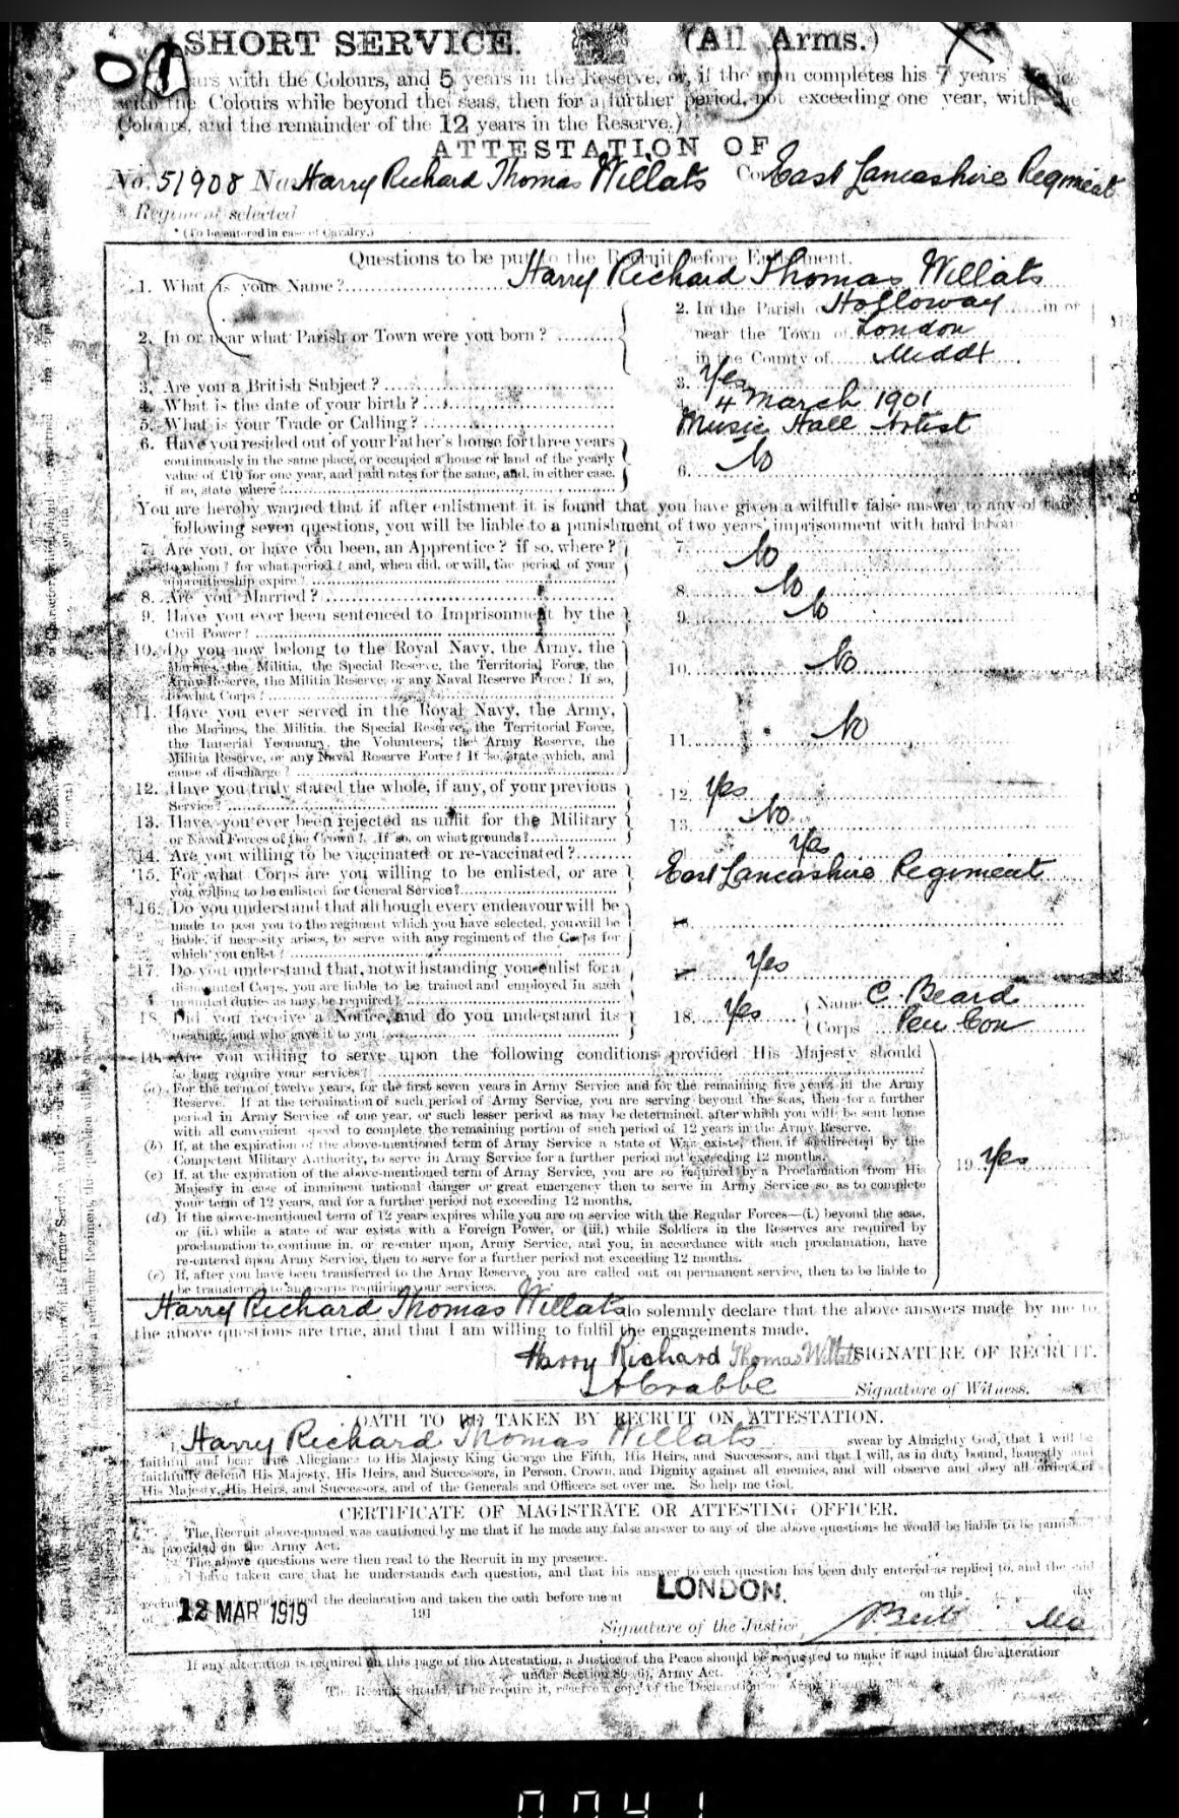 SHORT SERVICE. (All Arms.)
with the Colours, and 5 years in the Reserve, or, if the man completes his 7 years
with the Colours while beyond the seas, then for a further period, not exceeding one year, with the
Colours, and the remainder of the 12 years in the Reserve.)
ATTESTATION OF
No. 51908 Harry Richard Thomas Willats East Lancashire Regiment
Regiment selected
* (To be entered in case of Cavalry.)
Questions to be put to the Recruit before Enlistment.
1. What is your Name? Harry Richard Thomas Willats
2. In or near what Parish or Town were you born?
2. In the Parish of Holloway in or
near the Town of London
in the County of Middx
3. Are you a British Subject? 3. Yes
4. What is the date of your birth? 4 March 1901
5. What is your Trade or Calling? Music Hall Artist
6. Have you resided out of your Father's house for three years
continuously in the same place, or occupied a house or land of the yearly
value of £10 for one year, and paid rates for the same, and, in either case,
if so, state where?
6. No
You are hereby warned that if after enlistment it is found that you have given a wilfully false answer to any of the
following seven questions, you will be liable to a punishment of two years' imprisonment with hard labour
7. Are you, or have you been, an Apprentice? if so, where?
to whom? for what period? and, when did, or will, the period of your
apprenticeship expire?
7. No
8. Are you Married? 8. No
9. Have you ever been sentenced to Imprisonment by the
Civil Power?
9. No
10. Do you now belong to the Royal Navy, the Army, the
Marines, the Militia, the Special Reserve, the Territorial Force, the
Army Reserve, the Militia Reserve, or any Naval Reserve Force? If so,
to what Corps?
10. No
11. Have you ever served in the Royal Navy, the Army,
the Marines, the Militia, the Special Reserve, the Territorial Force,
the Imperial Yeomanry, the Volunteers, the Army Reserve, the
Militia Reserve, or any Naval Reserve Force? If so, state which, and
cause of discharge?
11. No
12. Have you truly stated the whole, if any, of your previous
Service?
12. Yes
13. Have you ever been rejected as unfit for the Military
or Naval Forces of the Crown? If so, on what grounds?
13. No
14. Are you willing to be vaccinated or re-vaccinated? Yes
15. For what Corps are you willing to be enlisted, or are
you willing to be enlisted for General Service?
East Lancashire Regiment
16. Do you understand that although every endeavour will be
made to post you to the regiment which you have selected, you will be
liable, if necessity arises, to serve with any regiment of the Corps for
which you enlist?
16.
17. Do you understand that, notwithstanding you enlist for a
dismounted Corps, you are liable to be trained and employed in such
mounted duties as may be required?
Yes
18. Did you receive a Notice, and do you understand its
meaning, and who gave it to you
18. Yes Name C. Beard
Corps
19. Are you willing to serve upon the following conditions provided His Majesty should
so long require your services?
(a) For the term of twelve years, for the first seven years in Army Service and for the remaining five years in the Army
Reserve. If at the termination of such period of Army Service, you are serving beyond the seas, then for a further
period in Army Service of one year, or such lesser period as may be determined, after which you will be sent home
with all convenient speed to complete the remaining portion of such period of 12 years in the Army Reserve.
(b) If, at the expiration of the above-mentioned term of Army Service a state of War exists, then, if so directed by the
Competent Military Authority, to serve in Army Service for a further period not exceeding 12 months.
(c) If, at the expiration of the above-mentioned term of Army Service, you are so required by a Proclamation from His
Majesty in case of imminent national danger or great emergency then to serve in Army Service so as to complete
your term of 12 years, and for a further period not exceeding 12 months.
(d) If the above-mentioned term of 12 years expires while you are on service with the Regular Forces—(i.) beyond the seas,
or (ii.) while a state of war exists with a Foreign Power, or (iii.) while Soldiers in the Reserves are required by
proclamation to continue in, or re-enter upon, Army Service, and you, in accordance with such proclamation, have
re-entered upon Army Service, then to serve for a further period not exceeding 12 months.
(e) If, after you have been transferred to the Army Reserve, you are called out on permanent service, then to be liable to
be transferred to any corps requiring your services.
19. Yes
Harry Richard Thomas Willats do solemnly declare that the above answers made by me to
the above questions are true, and that I am willing to fulfil the engagements made.
Harry Richard Thomas Willats SIGNATURE OF RECRUIT.
Crabbe Signature of Witness.
OATH TO BE TAKEN BY RECRUIT ON ATTESTATION.
I, Harry Richard Thomas Willats swear by Almighty God, that I will be
faithful and bear true Allegiance to His Majesty King George the Fifth, His Heirs, and Successors, and that I will, as in duty bound, honestly and
faithfully defend His Majesty, His Heirs, and Successors, in Person, Crown, and Dignity against all enemies, and will observe and obey all orders of
His Majesty, His Heirs, and Successors, and of the Generals and Officers set over me. So help me God.
CERTIFICATE OF MAGISTRATE OR ATTESTING OFFICER.
The Recruit above-named was cautioned by me that if he made any false answer to any of the above questions he would be liable to be punished
as provided in the Army Act.
The above questions were then read to the Recruit in my presence.
I have taken care that he understands each question, and that his answer to each question has been duly entered as replied to, and the said
recruit has made and signed the declaration and taken the oath before me at LONDON. on this day
of 12 MAR 1919 191
Signature of the Justice
If any alteration is required on this page of the Attestation, a Justice of the Peace should be requested to make it and initial the alteration
under Section 80 (6), Army Act.
The Recruit should, if he require it, receive a copy of the Declaration on
0041